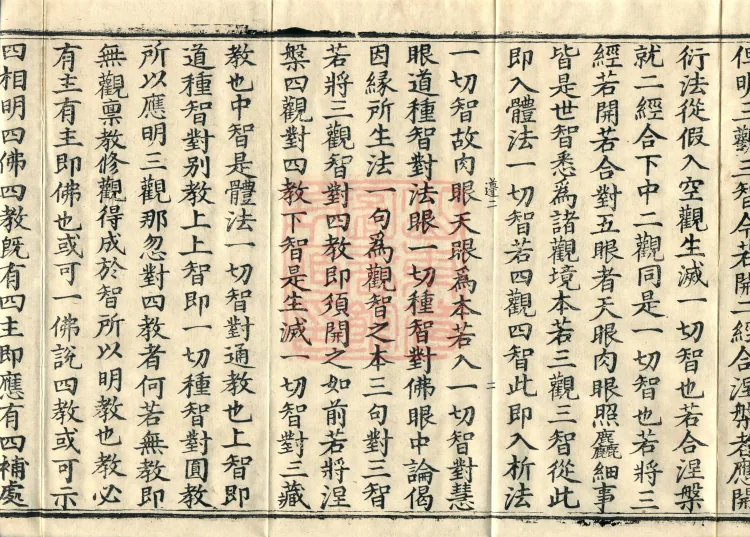 但明三觀三智今若開二經合涅槃者應開
衍法從假入空觀生滅一切智也若合涅槃
就二經合下中二觀同是一切智也若將三
經若開若合對五眼者天眼肉眼照麤細事
皆是世智悉爲諸觀境本若三觀三智從此
即入體法一切智若四觀四智此即入析法
遵二 二
一切智故肉眼天眼爲本若入一切智對慧
眼道種智對法眼一切種智對佛眼中論偈
因緣所生法一句爲觀智之本三句對三智
若將三觀智對四教即須開之如前若將涅
槃四觀對四教下智是生滅一切智對三藏
教也中智是體法一切智對通教也上智即
道種智對別教上上智即一切種智對圓教
所以應明三觀那忽對四教者何若無教即
無觀稟教修觀得成於智所以明教也教必
有主有主即佛也或可一佛說四教或可示
四相明四佛四教旣有四主即應有四補處